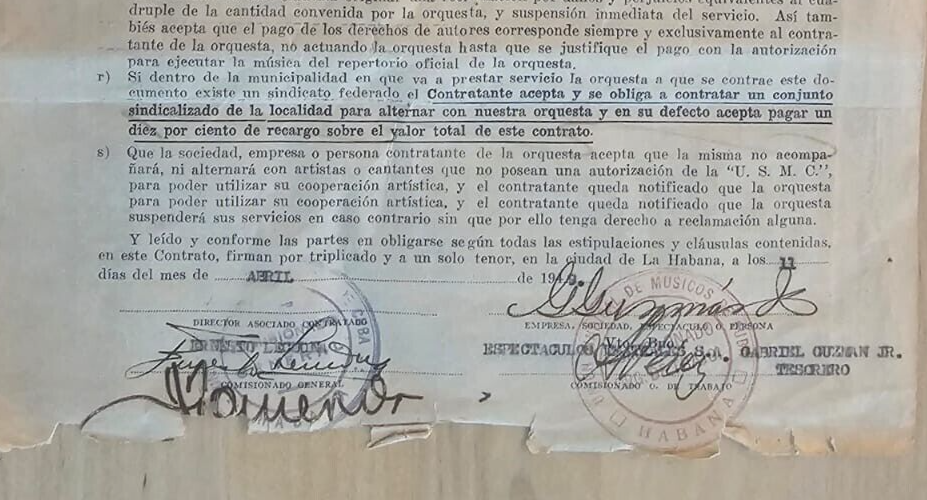 druple de la cantidad convenida por la orquesta, y suspensión inmediata del servicio. Así tam-
biés acepta que el pago de los derechos de autores corresponde siempre y exclusivamente al contra-
tante de la orquesta, no actuando la orquesta hasta que se justifique el pago con la autorización
para ejecutar la música del repertorio oficial de la orquesta.
r) Si dentro de la municipalidad en que va a prestar servicio la orquesta a que se contrae este do-
cumento existe un sindicato federado el Contratante acepta y se obliga a contratar un conjunto
sindicalizado de la localidad para alternar con nuestra orquesta y en su defecto acepta pagar un
diez por ciento de recargo sobre el valor total de este contrato.
s) Que la sociedad, empresa o persona contratante de la orquesta acepta que la misma no acompa-
ñará, ni alternará con artistas o cantantes que no posean una autorización de la "U. S. M. C.",
para poder utilizar su cooperación artística, y el contratante queda notificado que la orquesta
para poder utilizar su cooperación artística, y el contratante queda notificado que la orquesta
suspenderá sus servicios en caso contrario sin que por ello tenga derecho a reclamación alguna.
Y leído y conforme las partes en obligarse según todas las estipulaciones y cláusulas contenidas,
en este Contrato, firman por triplicado y a un solo tenor, en la ciudad de La Habana, a los 11
días del mes de ABRIL de 194
DIRECTOR ASOCIADO CONTRATADO
EMPRESA, SOCIEDAD, ESPECTACULO O PERSONA
ERNESTO LECUONA
Vto. Bno.
ESPECTACULOS S.A. GABRIEL GUZMAN JR.
TESORERO
COMISIONADO GENERAL
COMISIONADO O. DE TRABAJO
DE MUSICOS
HABANA
CUBA